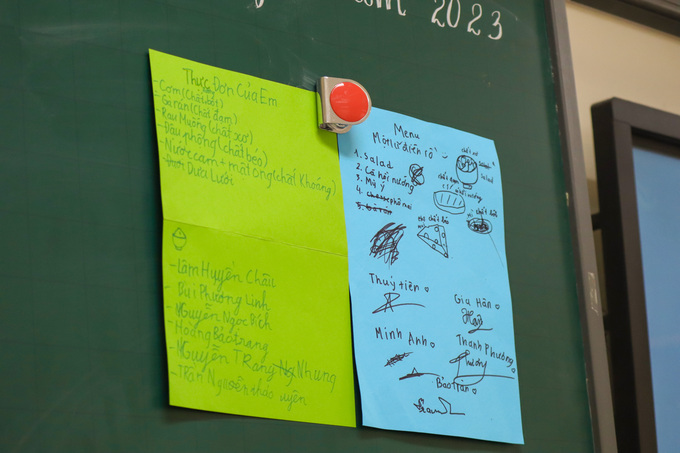 2023
Thực Đơn Của Em
- Cơm (Chất bột)
- Gà rán (chất đạm)
- Rau Muống (chất xơ)
- Đậu phộng (chất béo)
- Nước cam + mật ong (chất Khoáng)
- Dưa Lưới
- Lâm Huyền Châu
- Bùi Phương Linh
- Nguyễn Ngọc Bích
- Hoàng Bảo trang
- Nguyễn Trang Nhung
- Trần Nguyễn thảo uyên
Menu
Một tứ điên rồ
1. Salad
2. Cá hồi nướng
3. Mỳ ý
4. phô mai
Salad
Thuỷ tiên
Gia Hân
Minh Anh
Thanh Phương
Phương
Bảo Trân